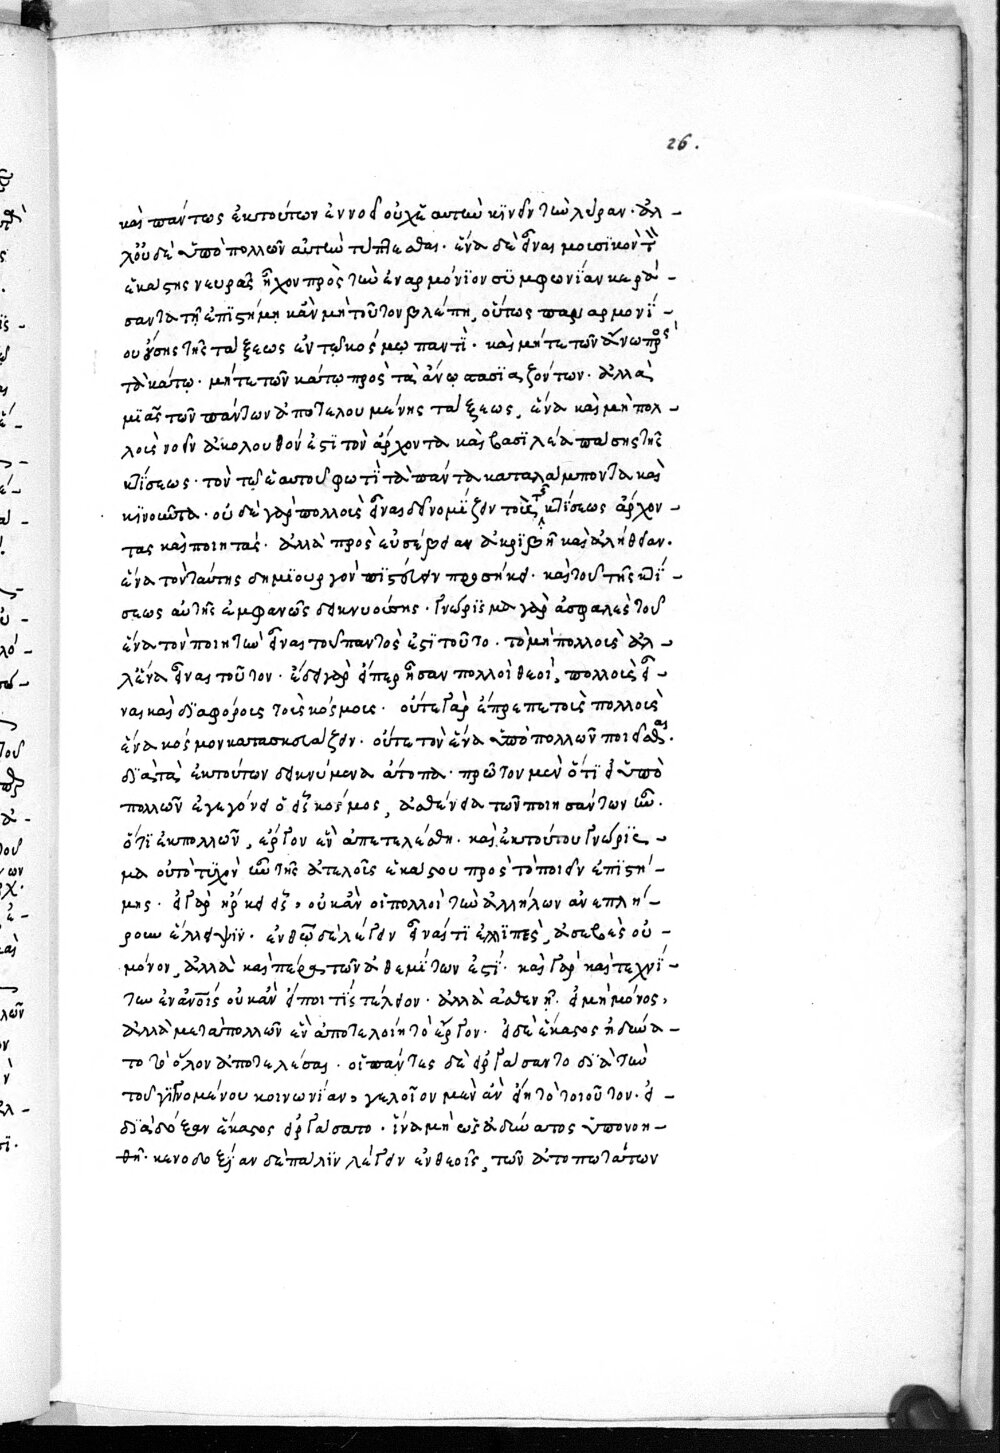 26.
καὶ πάντως ἐκ τούτων ἐννοεῖ οὐχ αὐτὴν κινεῖν τὴν λύραν· ἀλ-
λ' οὐδὲ ὑπὸ πολλῶν αὐτὴν τύπτεσθαι. ἕνα δὲ εἶναι μουσικὸν τὸν
ἑκάστης νευρᾶς ἦχον πρὸς τὴν ἐναρμόνιον συμφωνίαν κερά-
σαντα τῇ ἐπιστήμῃ κἂν μὴ τοῦτον βλέπῃ, οὕτως παναρμονί-
ου οὔσης τῆς τάξεως ἐν τῷ κόσμῳ παντὶ. καὶ μήτε τῶν ἄνω πρὸς
τὰ κάτω. μήτε τῶν κάτω πρὸς τὰ ἄνω στασιαζόντων. ἀλλὰ
μιᾶς τῶν πάντων ἀποτελουμένης τάξεως, ἕνα καὶ μὴ πολ-
λοὺς νοεῖν ἀκόλουθόν ἐστι τὸν ἄρχοντα καὶ βασιλέα πάσης τῆς
κτίσεως. τὸν τῷ ἑαυτοῦ φωτὶ τὰ πάντα καταλάμποντα καὶ
κινοῦντα. οὐδὲ γὰρ πολλοὺς εἶναι δεῖ νομίζειν τοὺς τῆς κτίσεως ἄρχον-
τας καὶ ποιητάς. ἀλλὰ πρὸς εὐσέβειαν ἀκριβῆ καὶ ἀλήθειαν.
ἕνα τὸν ταύτης δημιουργὸν πιστεύειν προσήκει. καὶ τοῦ τῆς κτί-
σεως αὐτῆς ἐμφανῶς δεικνυούσης. γνώρισμα γὰρ ἀσφαλὲς τοῦ
ἕνα τὸν ποιητὴν εἶναι τοῦ παντὸς ἐστὶ τοῦτο. τὸ μὴ πολλοὺς ἀλ-
λ' ἕνα εἶναι τοῦτον. ἔδει γὰρ εἴπερ ἦσαν πολλοὶ θεοὶ, πολλοὺς εἶ-
ναι καὶ διαφόρους τοὺς κόσμους. οὔτε γὰρ ἔπρεπε τοὺς πολλοὺς
ἕνα κόσμον κατασκευάζειν. οὔτε τὸν ἕνα ὑπὸ πολλῶν ποιεῖσθαι.
διὰ τὰ ἐκ τούτων δεικνύμενα ἄτοπα. πρῶτον μὲν ὅτι εἰ ὑπὸ
πολλῶν ἐγεγόνει ὁ εἷς κόσμος, ἀσθένεια τῶν ποιησάντων ἦν.
ὅτι ἐκ πολλῶν, ἔργον ἓν ἀπετελέσθη. καὶ ἐκ τούτου γνώρισ-
μα οὐ τὸ τυχὸν ἦν τῆς ἀτελοῦς ἑκάστου πρὸς τὸ ποιεῖν ἐπιστή-
μης. εἰ γὰρ ἤρκει εἷς, οὐκ ἂν οἱ πολλοὶ τὴν ἀλλήλων ἀνεπλή-
ρουν ἔλλειψιν. ἐν θεῷ δὲ λέγειν εἶναί τι ἐλλιπὲς, ἀσεβὲς οὐ-
μόνον, ἀλλὰ καὶ πέρα τῶν ἀθεμίτων ἐστί. καὶ γὰρ καὶ τεχνί-
την ἐν ἀνθρώποις οὐκ ἄν εἴποι τις τέλειον. ἀλλὰ ἀσθενῆ. εἰ μὴ μόνος,
ἀλλὰ μετὰ πολλῶν ἓν ἀποτελοίη τὸ ἔργον. εἰ δὲ ἕκαστος ἠδύνα-
το τὸ ὅλον ἀποτελέσαι. οἱ πάντες δὲ εἰργάσαντο διὰ τὴν
τοῦ γινομένου κοινωνίαν, γελοῖον μὲν ἂν εἴη τὸ τοιοῦτον. εἰ
διὰ δόξαν ἕκαστος εἰργάσατο. ἵνα μὴ ὡς ἀδύνατος ὑπονοη-
θῇ. κενοδοξίαν δὲ πάλιν λέγειν ἐν θεοῖς, τῶν ἀτοπωτάτων